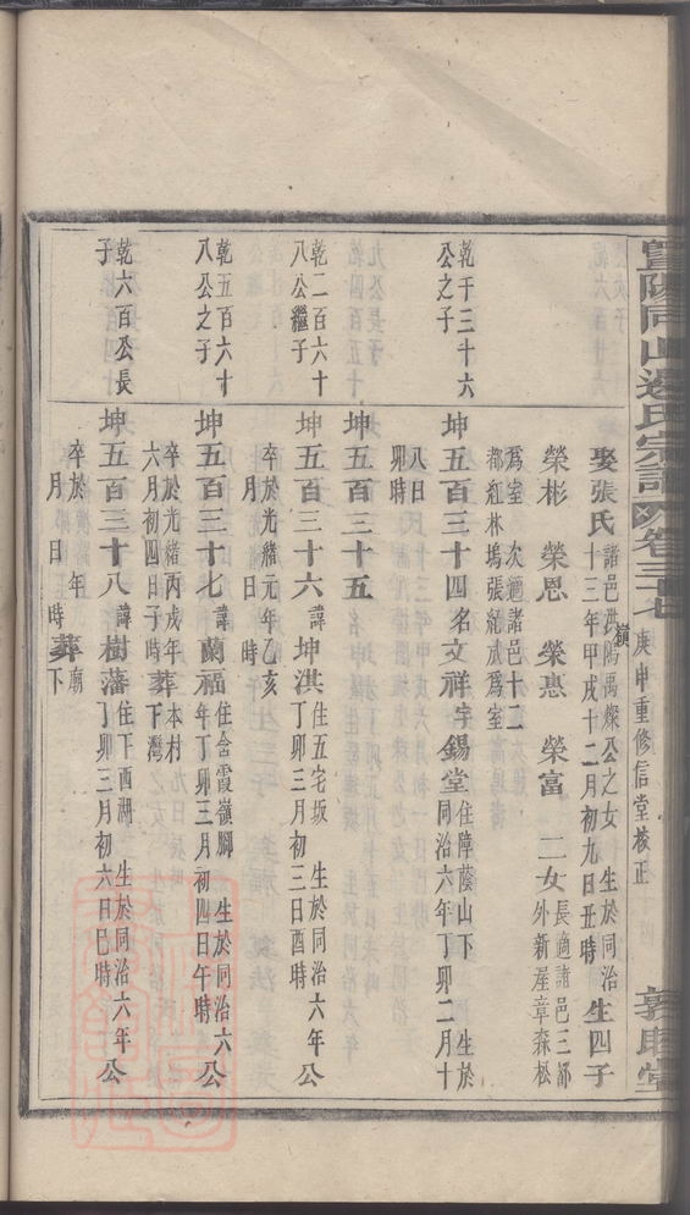 暨陽同山邊氏宗譜 卷三十七 庚申重修信堂校正 敦睦堂
娶張氏諸邑洪嶺塢禹燦公之女 生於同治
十三年甲戌十二月初九日丑時 生四子
榮彬 榮恩 榮惠 榮富 二女長適諸邑三都
外新屋章森松
為室 次適諸邑十二
都紅林塢張紀水為室
乾千三十六
公之子
坤五百三十四名文祥字錫堂住障蔭山下 生於
同治六年丁卯二月十
八日
卯時
坤五百三十五
乾二百六十
八公繼子
坤五百三十六諱坤淇住五宅坂 生於同治六年
丁卯三月初三日酉時 公
卒於光緒元年乙亥
月 日 時
乾五百六十
八公之子
坤五百三十七諱蘭福住含霞嶺腳 生於同治六
年丁卯三月初四日午時 公
卒於光緒丙戌年
六月初四日子時 葬本村
下灣
乾六百公長
子
坤五百三十八諱樹藩住下西湖 生於同治六年
丁卯三月初六日巳時 公
卒於 年
月 日 時 葬廟
下